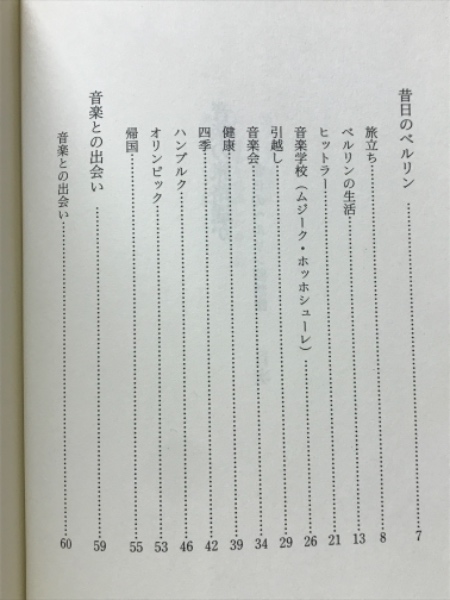 昔日のベルリン……………7
旅立ち……………8
ベルリンの生活……………13
ヒットラー……………21
音楽学校（ムジーク・ホッホシューレ）……………26
引越し……………29
音楽会……………34
健康……………39
四季……………42
ハンブルク……………46
オリンピック……………53
帰国……………55
音楽との出会い……………59
音楽との出会い……………60